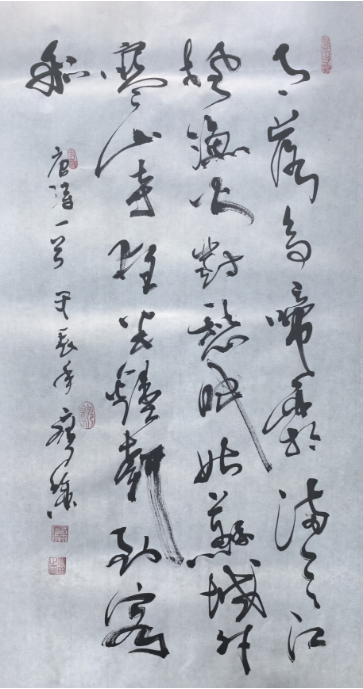 月落烏啼霜滿天江
楓漁火對愁眠姑蘇城外
寒山寺夜半鐘聲到客
船
唐詩一首 甲辰年